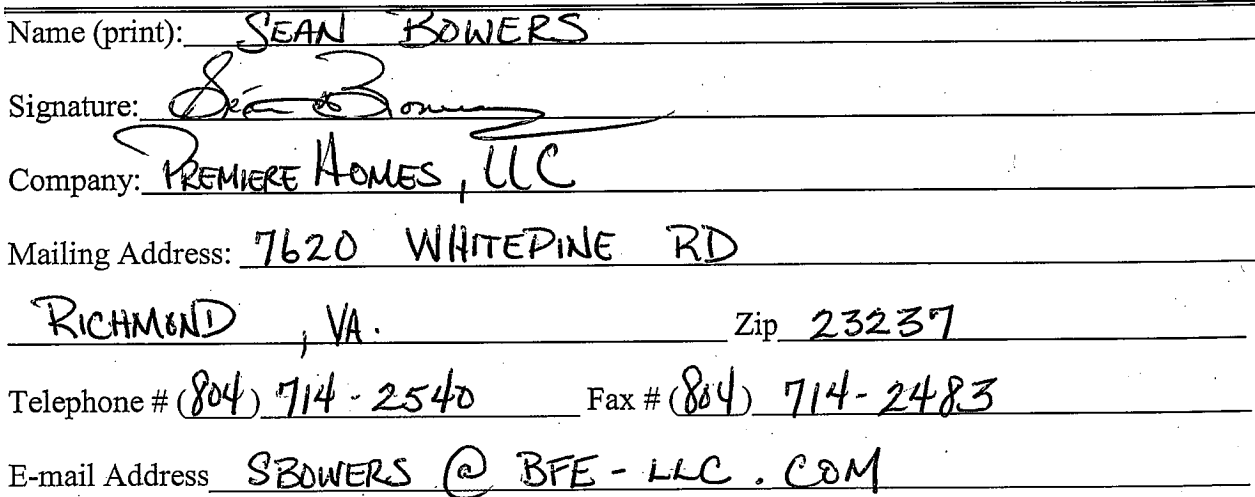 Name (print): SEAN BOWERS
Signature: Seán Bowers
Company: PREMIERE HOMES, LLC
Mailing Address: 7620 WHITEPINE RD
RICHMOND, VA. Zip 23237
Telephone # (804) 714-2540 Fax # (804) 714-2483
E-mail Address SBOWERS @ BFE-LLC.COM